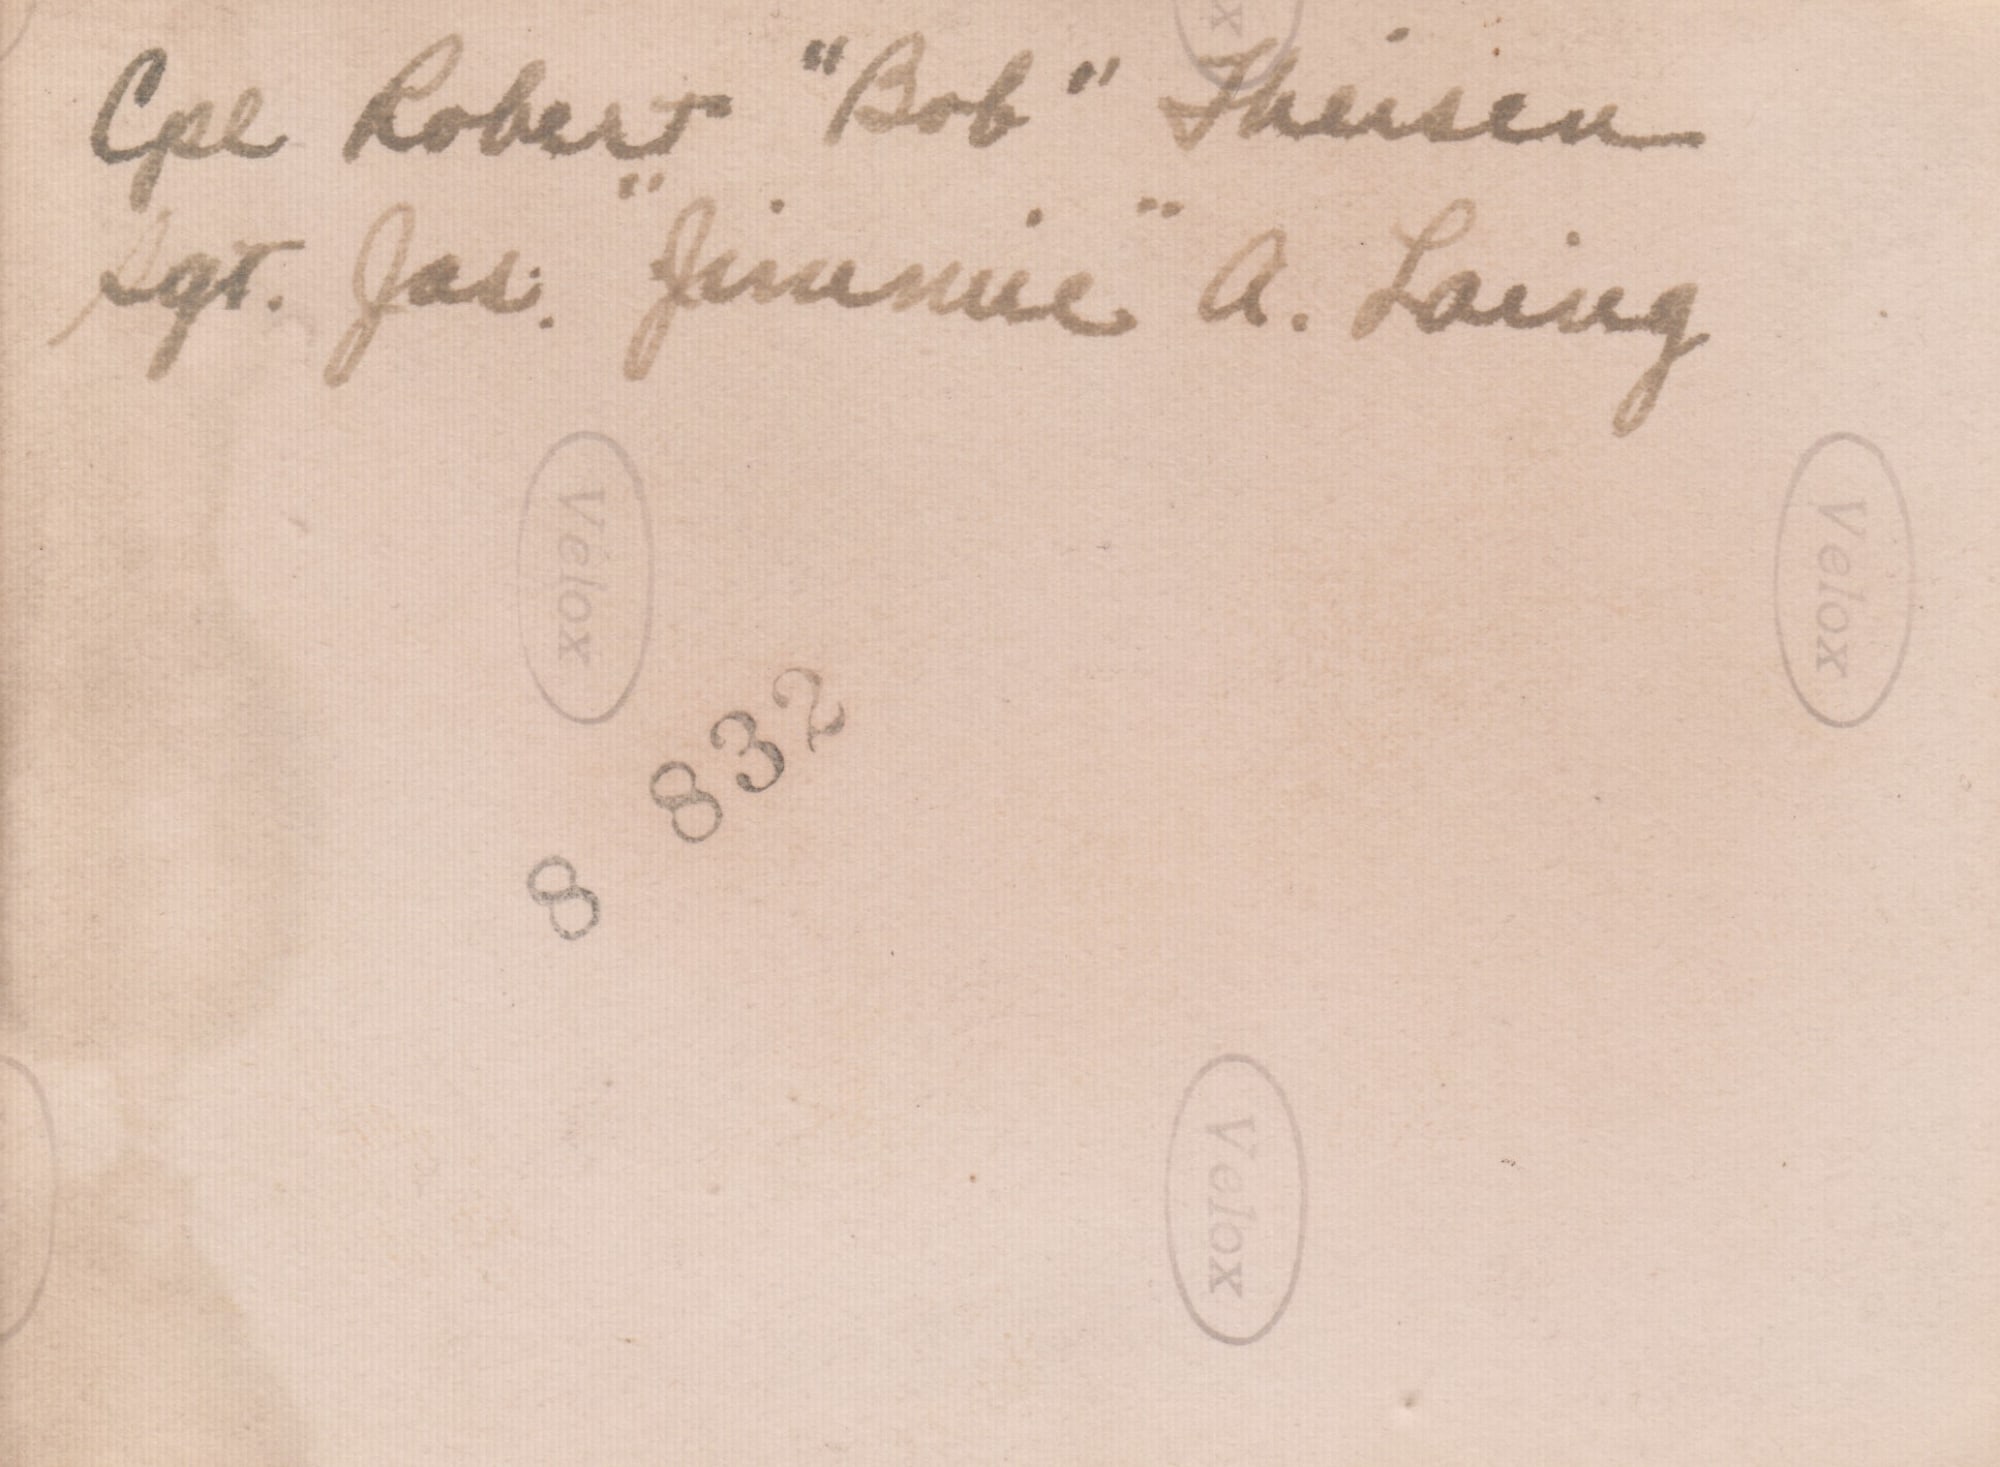 x
Cpl Robert "Bob" Theisen
Sgt. Jas. "Jimmie" A. Laing
Velox
Velox
8 832
Velox